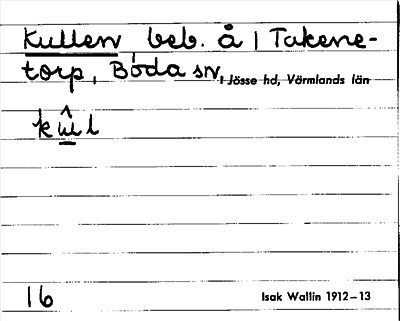 Kullen beb. å | Takene-
torp, Boda sn, Jösse hd, Värmlands län
16 Isak Wallin 1912–13